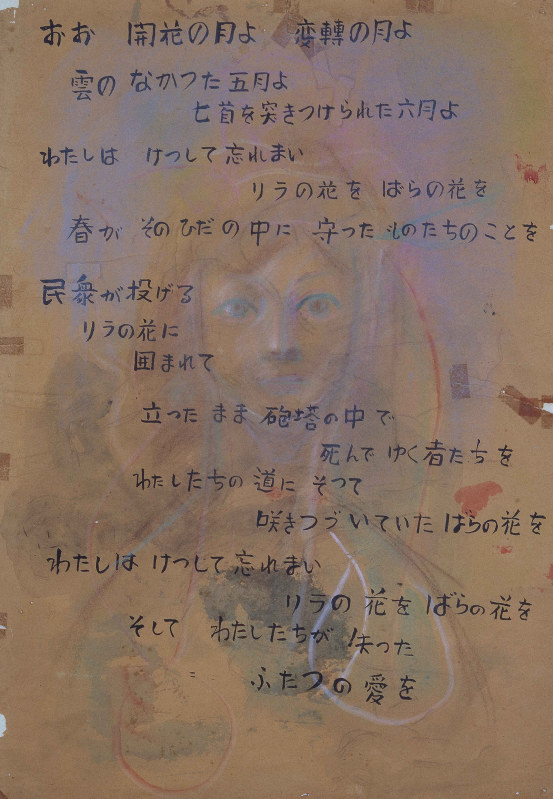 おお 開花の月よ 変轉の月よ
雲の なかつた 五月よ
七首を突きつけられた六月よ
わたしは けつして 忘れまい
リラの花を ばらの花を
春が そのひだの中に 守った ものたちのことを
民衆が投げる
リラの花に
囲まれて
立った まま 砲塔の中で
死んで ゆく者たちを
わたしたちの 道に そつて
咲きつづいていた ばらの花を
わたしは けつして 忘れまい
リラの 花を ばらの花を
そして わたしたちが 失った
ふたつの 愛を